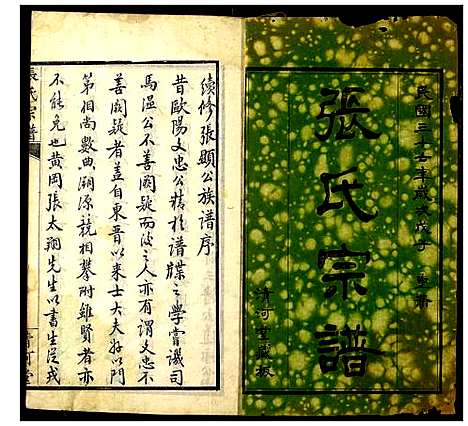 民國三十七年歲次戊子 重修
張氏宗譜
清河堂藏板
續修張顯公族譜序
昔歐陽文忠公精於譜牒之學嘗議司
馬溫公不善闕疑而後之人亦有謂文忠不
善闕疑者蓋自東晉以來士大夫好以門
第相尚數典溯源競相攀附雖賢者亦
不能免也黃岡張太翔先生以書生從戎
張氏宗譜
清河堂